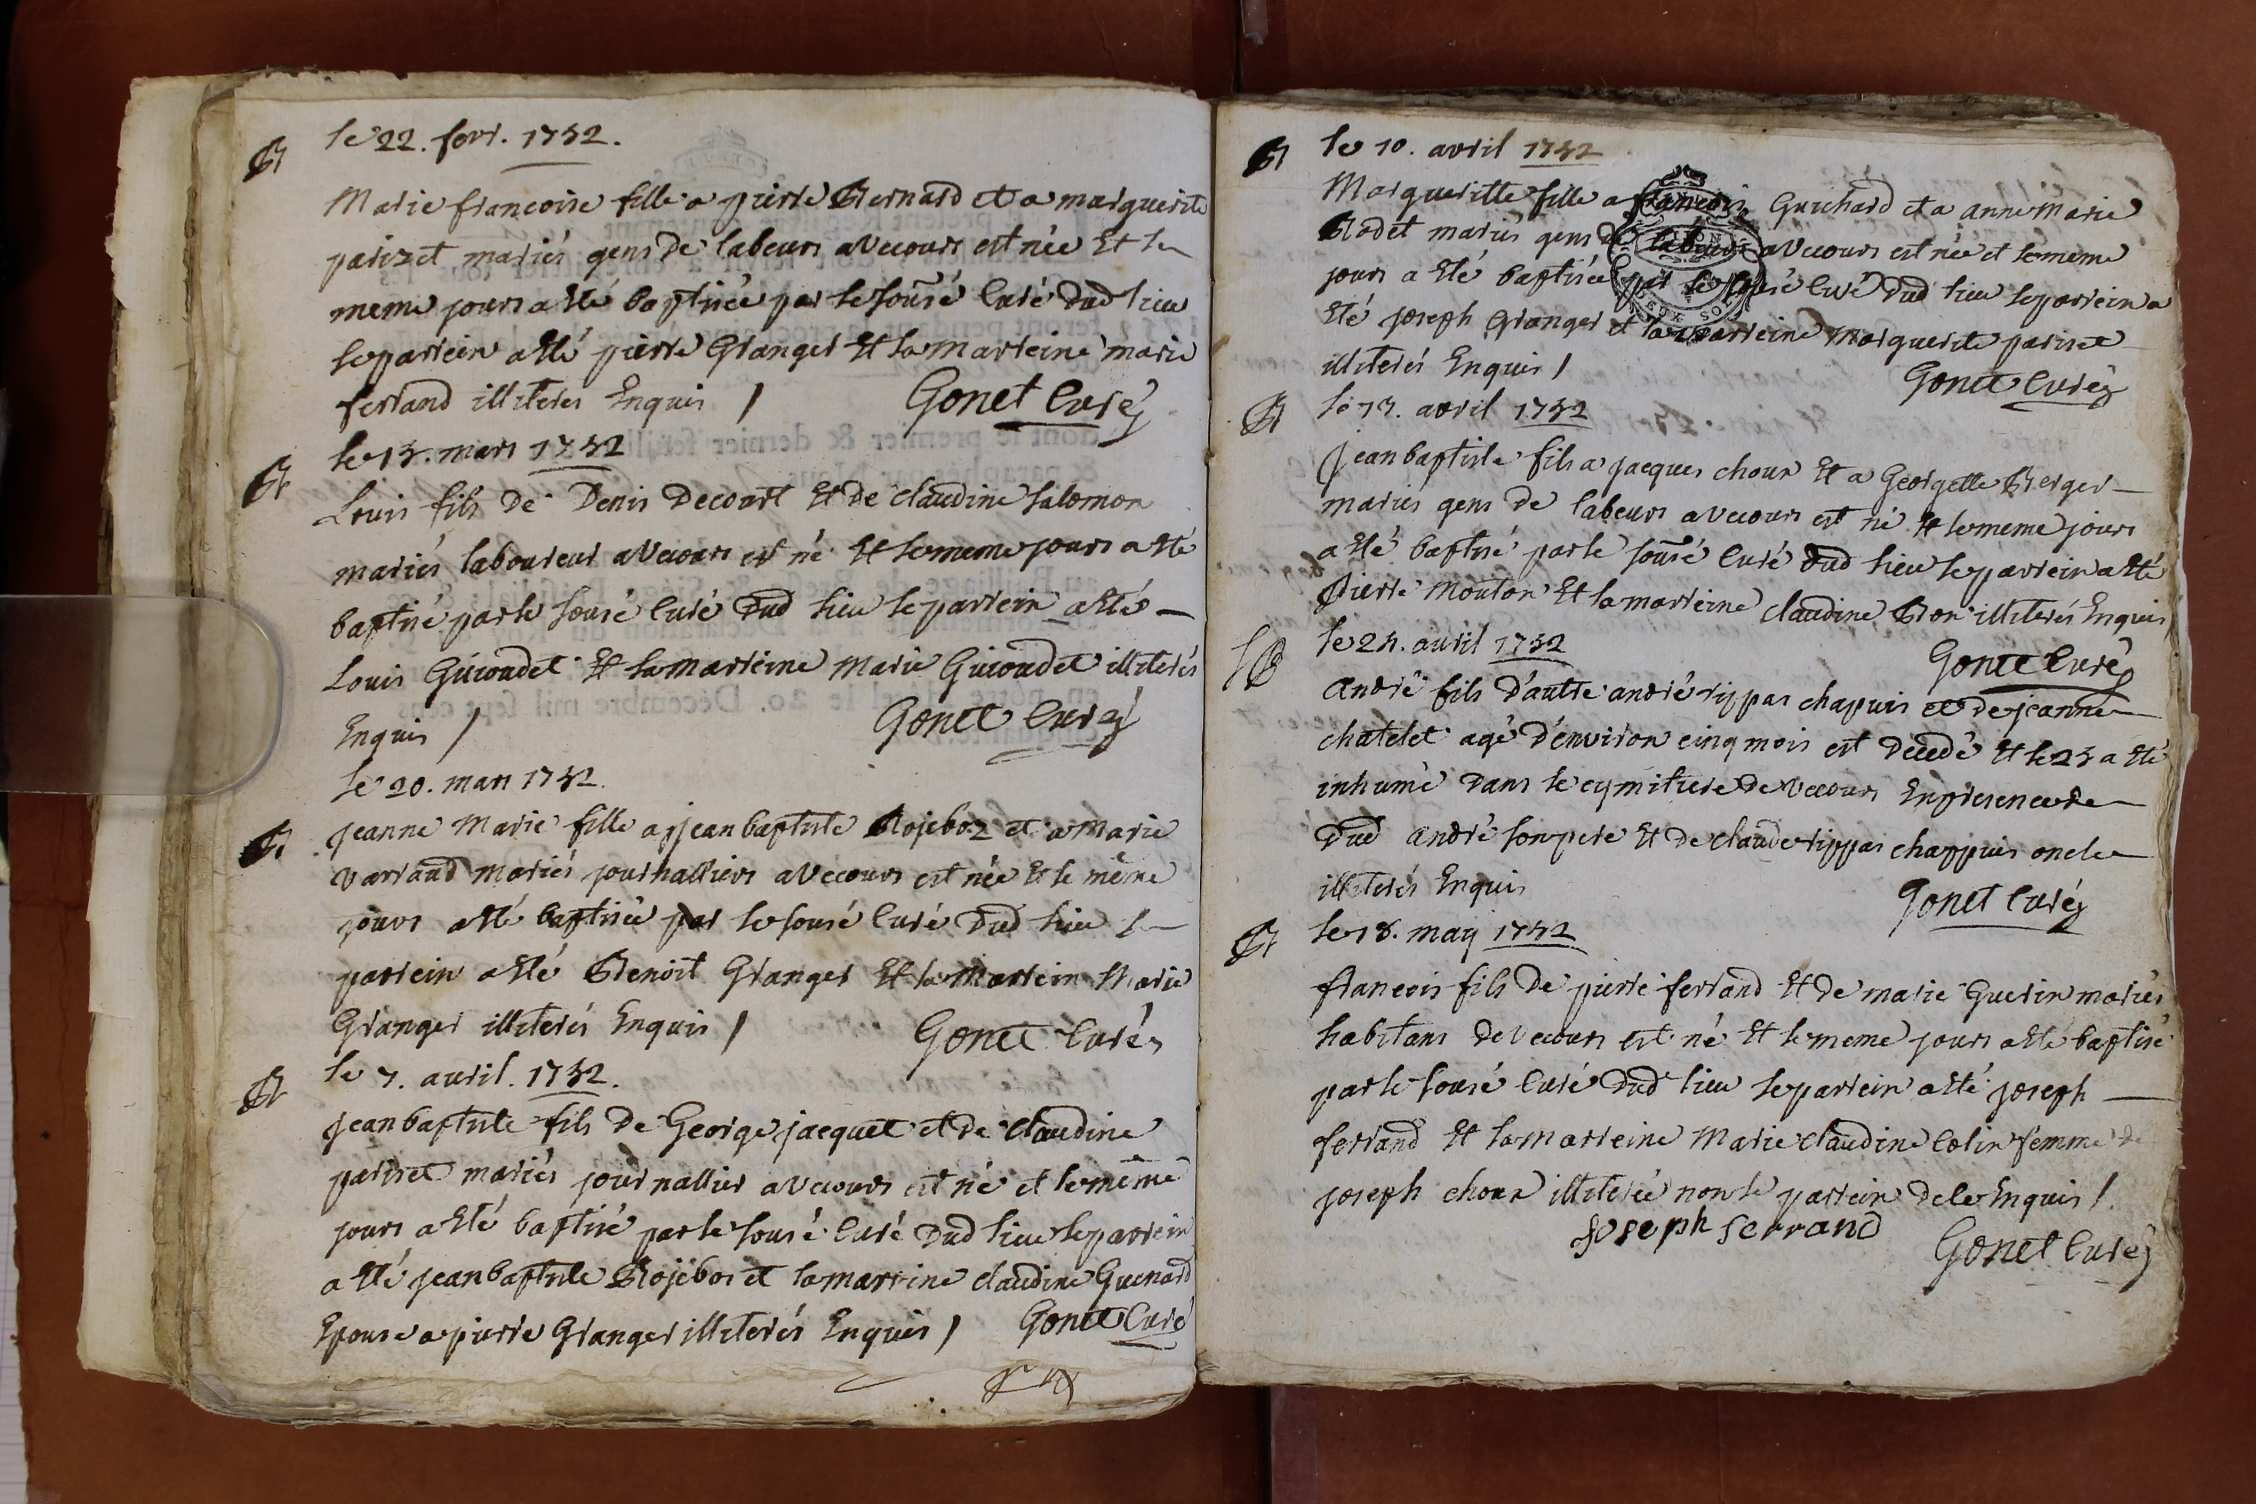 B
le 22. fevr. 1752.
Marie francoise fille a pierre Bernard et a marguerite
parizet mariés gens de labeurs a Vecours est née Et le
meme jours a Eté baptisée par le sousé Curé dud lieu
le parrein a Eté pierre Granger Et la Marreine marie
ferrand illiterés Enquis /
Gonet Curé
B
le 13. mars 1752
Louis fils de Denis Decourt Et de claudine Salomon
mariés laboureur a Vecours est né Et le meme jours a Eté
baptisé par le sousé Curé dud lieu le parrein a Eté
Louis Guioudet Et la Marreine Marie Guioudet illiterés
Enquis /
Gonet Curé
le 20. mars 1752.
B
jeanne Marie fille a jean baptiste Rojeboz et a Marie
varraud Mariés journalliers a Vecours est née Et le même
jours a Eté baptisée par le sousé Curé dud lieu le
parrein a Eté Benoit Granger Et la Marrein Marie
Granger illiterés Enquis /
Gonet Curé
B
le 7. avril. 1752.
jean baptiste fils de George jacquet et de Claudine
pariset mariés journallier a Vecours est né et le même
jours a Eté baptisé par le sousé Curé dud lieu le parrein
a Eté jean baptiste Rojebos et la marreine claudine Guenard
Epouse a pierre Granger illiterés Enquis /
Gonet Curé
B
le 10. avril 1752
Margueritte fille a francois Guichard et a anne Marie
Rodet mariés gens de labeurs a Vecours est née et le meme
jours a Eté baptisée par le sousé Curé dud lieu le parrein a
Eté joseph Granger et la marreine Marguerite pariset
illiterés Enquis /
Gonet Curé
B
le 13. avril 1752
jean baptiste fils a jacques choux Et a Georgette Berger
mariés gens de labeurs a Vecours est né Et le meme jours
a Eté baptisé par le sousé Curé dud lieu le parrein a Eté
Pierre Mouton Et la marreine claudine Bon illiterés Enquis
Gonet Curé
le 24. avril 1752
André fils d'autre andré rippas chapuis et de jeanne
chatelet agé d'environ cinq mois est decedé Et le 25 a Eté
inhumé dans le cymitiere de Vecours En presence de
dud andré son pere Et de claude rippas chappuis oncle
illiterés Enquis
Gonet Curé
B
le 18. may 1752
francois fils de pierre ferrand Et de marie Guerin mariés
habitans de Vecours est né Et le meme jours a Eté baptisé
par le sousé Curé dud lieu le parrein a Eté joseph
ferrand Et la Marreine Marie claudine Colin femme de
joseph choux illiterée non le parrein de ce Enquis /.
Joseph ferrand
Gonet Curé